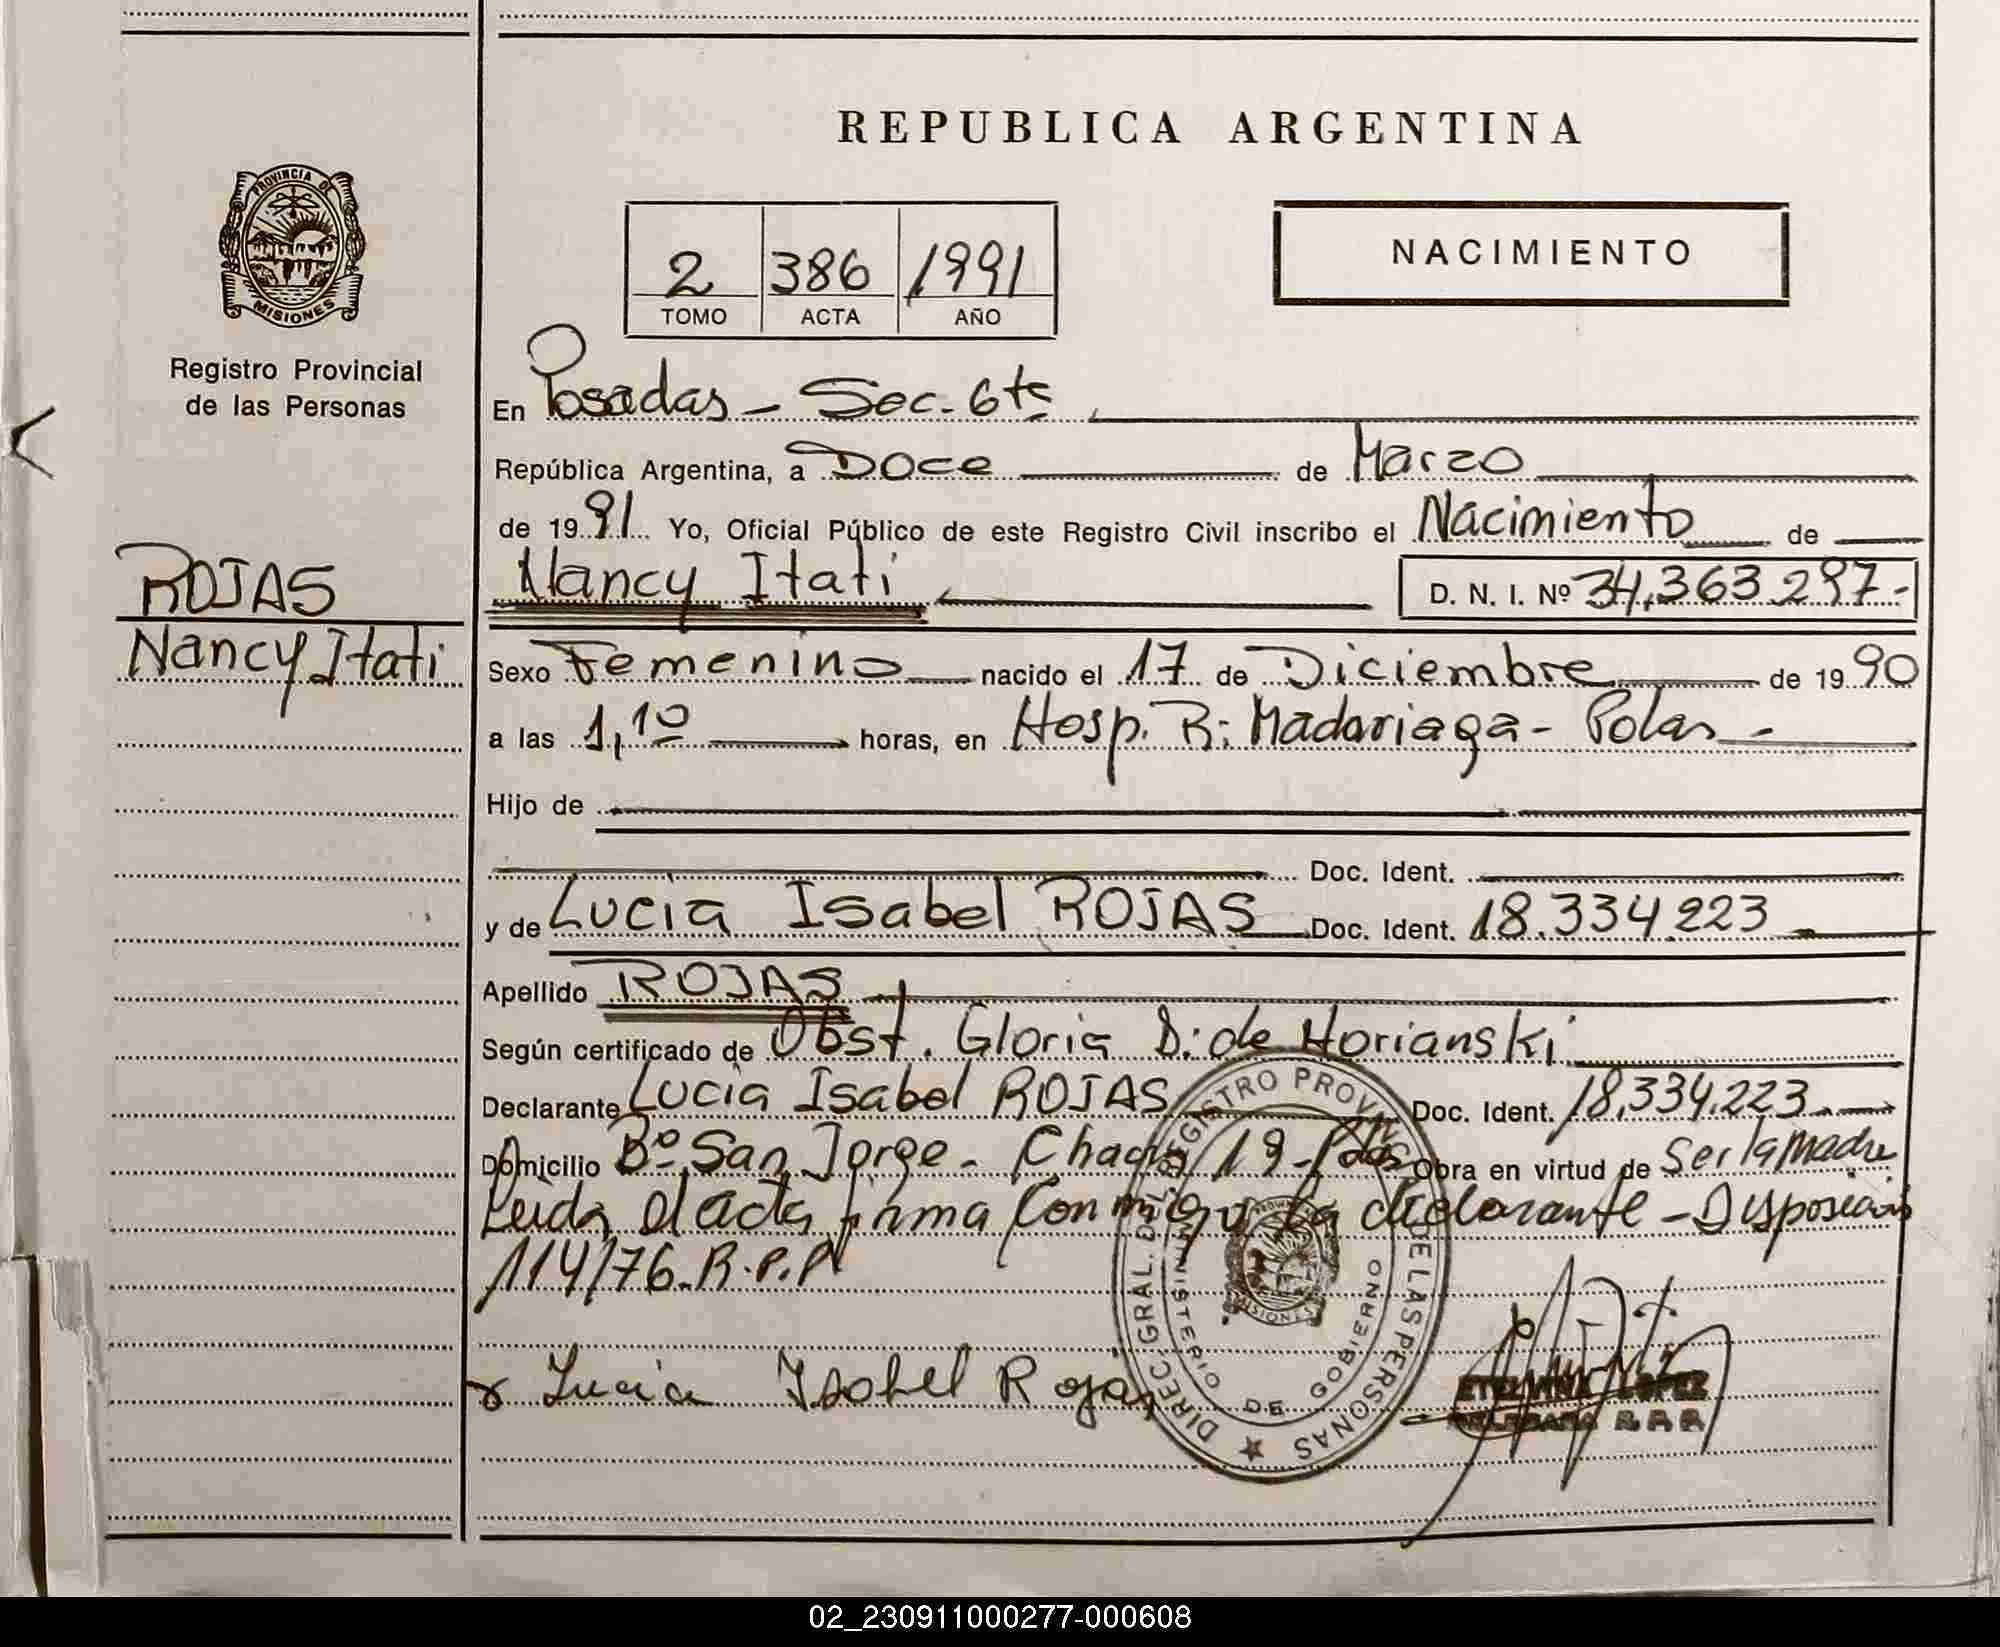 REPUBLICA ARGENTINA
PROVINCIA DE MISIONES
Registro Provincial
de las Personas
2 386 1991
TOMO ACTA AÑO
NACIMIENTO
ROJAS
Nancy Itati
En Posadas - Sec. 6ta
República Argentina, a Doce de Marzo
de 1991 Yo, Oficial Público de este Registro Civil inscribo el Nacimiento de
Nancy Itati D. N. I. Nº 34.363.297.-
Sexo Femenino nacido el 17 de Diciembre de 1990
a las 1,10 horas, en Hosp. R. Madariaga -
Hijo de
Doc. Ident.
y de Lucia Isabel ROJAS Doc. Ident. 18.334.223
Apellido ROJAS
Según certificado de Obst. Gloria D. de Horianski
Declarante Lucia Isabel ROJAS Doc. Ident. 18.334.223
Domicilio Bº San Jorge - Chacra 19 - Pdas Obra en virtud de Ser la Madre
Leida el acta firma conmigo la declarante - Disposición
114/76. R.P.P
Lucia Isabel Rojas
DIREC. GRAL. DEL REGISTRO PROVINC. DE LAS PERSONAS
MINISTERIO DE GOBIERNO
MISIONES
LOPEZ
02_230911000277-000608